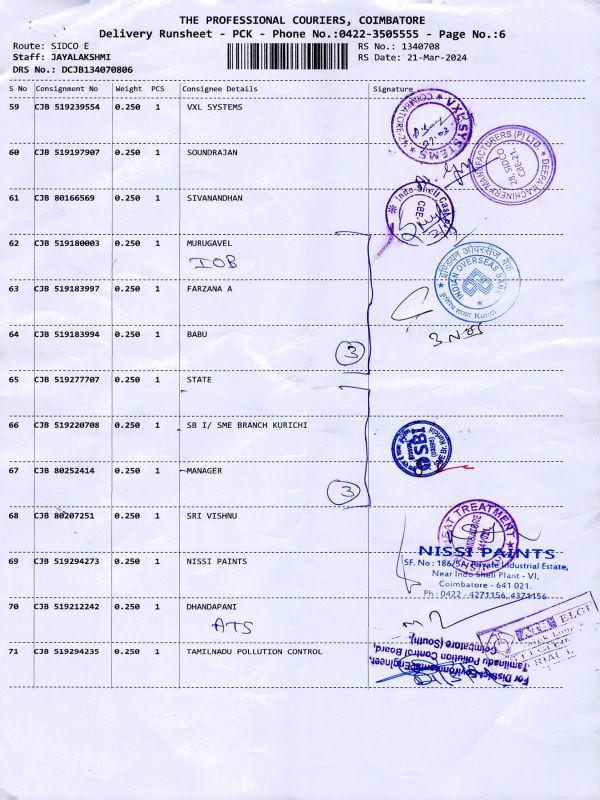 THE PROFESSIONAL COURIERS, COIMBATORE
Delivery Runsheet - PCK - Phone No.:0422-3505555 - Page No.:6
Route: SIDCO E
RS No.: 1340708
Staff: JAYALAKSHMI
RS Date: 21-Mar-2024
DRS No.: DCJB134070806
S No Consignment No Weight PCS Consignee Details Signature
59 CJB 519239554 0.250 1 VXL SYSTEMS
VXL SYSTEMS
COIMBATORE
60 CJB 519197907 0.250 1 SOUNDRAJAN
DEEPA MACHINERY MANUFACTURERS (P) LTD
28 SIDCO
CBE-21.
61 CJB 80166569 0.250 1 SIVANANDHAN
Indo Shell Cast
CBE
62 CJB 519180003 0.250 1 MURUGAVEL
IOB
इण्डियन ओवरसीज़ बैंक
INDIAN OVERSEAS BANK
Kurici
63 CJB 519183997 0.250 1 FARZANA A
64 CJB 519183994 0.250 1 BABU
3
65 CJB 519277707 0.250 1 STATE
66 CJB 519220708 0.250 1 SB I/ SME BRANCH KURICHI
SBI
67 CJB 80252414 0.250 1 MANAGER
3
68 CJB 80207251 0.250 1 SRI VISHNU
HEAT TREATMENT
69 CJB 519294273 0.250 1 NISSI PAINTS
NISSI PAINTS
SF. No : 186/5A, Private Industrial Estate,
Near Indo Shell Plant - VI,
Coimbatore - 641 021.
Ph : 0422 - 4271156, 4371156
70 CJB 519212242 0.250 1 DHANDAPANI
ATS
ELGI
71 CJB 519294235 0.250 1 TAMILNADU POLLUTION CONTROL
For District Environmental Engineer,
Tamilnadu Pollution Control Board,
Coimbatore (South).